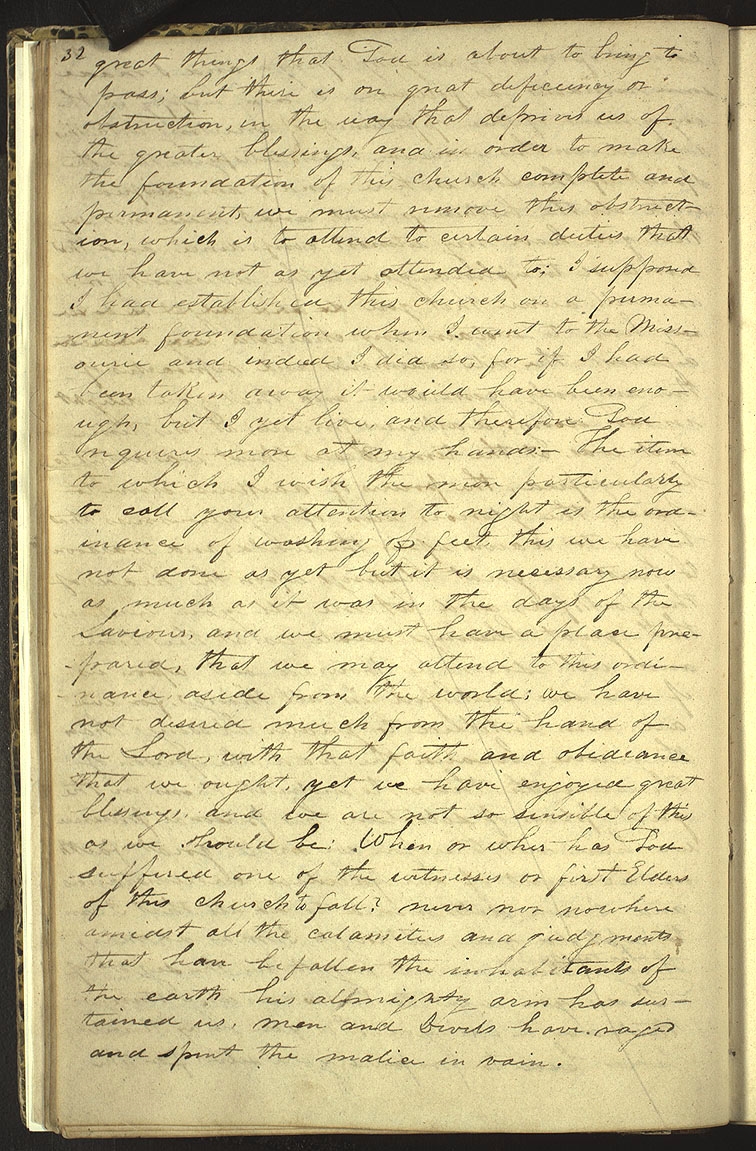 32 great things that God is about to bring to
pass; but there is on great deficiency or
obstruction, in the way that deprives us of
the greater blessings, and in order to make
the foundation of this church complete and
permanent, we must remove this obstruct-
ion, which is to attend to certain duties that
we have not as yet attended to: I supposed
I had established this church on a perma-
nent foundation when I went to the Miss-
ourie and indeed I did so, for if I had
been taken away it would have been eno-
ugh, but I yet live, and therefore God
requires more at my hands.- The item
to which I wish the more particularly
to call your attention to night is the ord-
inance of washing of feet, this we have
not done as yet but it is necessary now
as much as it was in the days of the
Saviour, and we must have a place pre-
pared, that we may attend to this ordi-
nance, aside from the world; we have
not desired much from the hand of
the Lord, with that faith and obideance
that we ought, yet we have enjoyed great
blessings, and we are not so sensible of this
as we should be: When or wher has God
suffered one of the witnesses or first Elders
of this church to fall? never nor nowhere
amidst all the calamities and judgments
that have befallen the inhabitants of
the earth his almighty arm has sus-
tained us, men and Devils have raged
and spent the malice in vain.